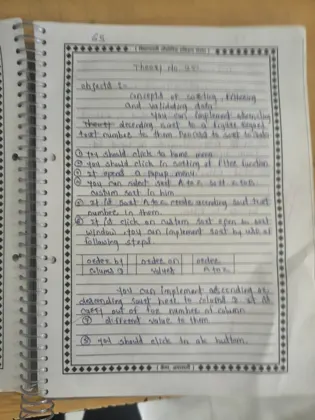 65
Theory No.
object :-
concept of sorting, filtering
and validating data
you can implement ascending
descending sort to a higher
text number to them. proceed to sort to data
① you should click to home menu.
② you should click in sorting of filter function
③ It opend a popup menu.
④ you can select sort A to Z sort Z to A
custom sort in him
⑤ It is sort A to Z create ascending sort text
number in them.
⑥ It is click on custom sort open to sort
window. you can implement sort by use of
following steps.
order by order on order
column values A to Z
you can implement ascending or
descending sort here to column
carry out of the number of column
⑦ different value to them
⑧ you should click to ok button.